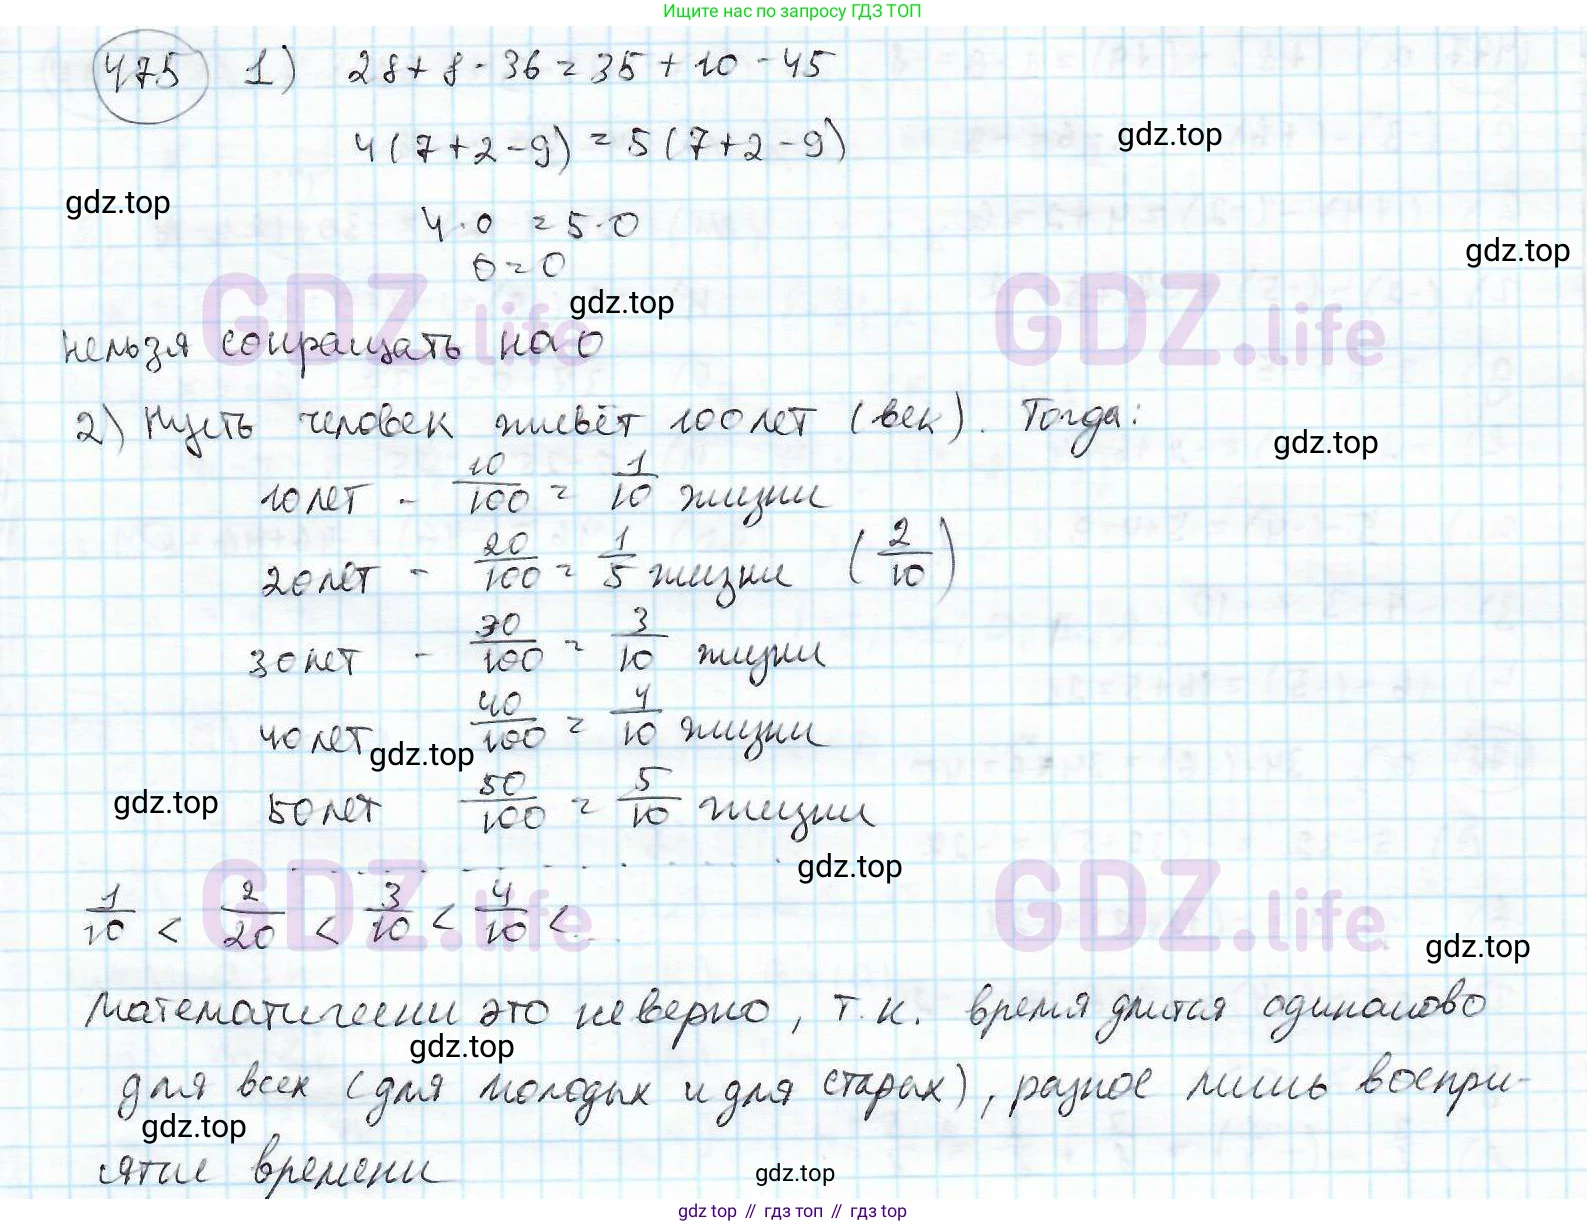 Ищите нас по запросу ГДЗ ТОП
475 1) 28 + 8 - 36 = 35 + 10 - 45
4(7+2-9) = 5(7+2-9)
gdz.top
gdz.top
4·0 = 5·0
gdz.top
0 = 0
gdz.top
GDZ.life GDZ.life
нельзя сокращать на 0
2) Пусть человек живёт 100 лет (век). Тогда:
gdz.top
10 лет - 10/100 = 1/10 жизни
20 лет - 20/100 = 1/5 жизни (2/10)
30 лет - 30/100 = 3/10 жизни
40 лет 40/100 = 4/10 жизни
gdz.top
gdz.top
50 лет 50/100 = 5/10 жизни
gdz.top
GDZ.life GDZ.life
1/10 < 2/20 < 3/10 < 4/10 < ...
gdz.top
Математически это неверно, т.к. время длится одинаково
gdz.top
для всех (для молодых и для старых), разное лишь воспри-
gdz.top
ятие времени
gdz.top
gdz top // гдз топ // gdz top